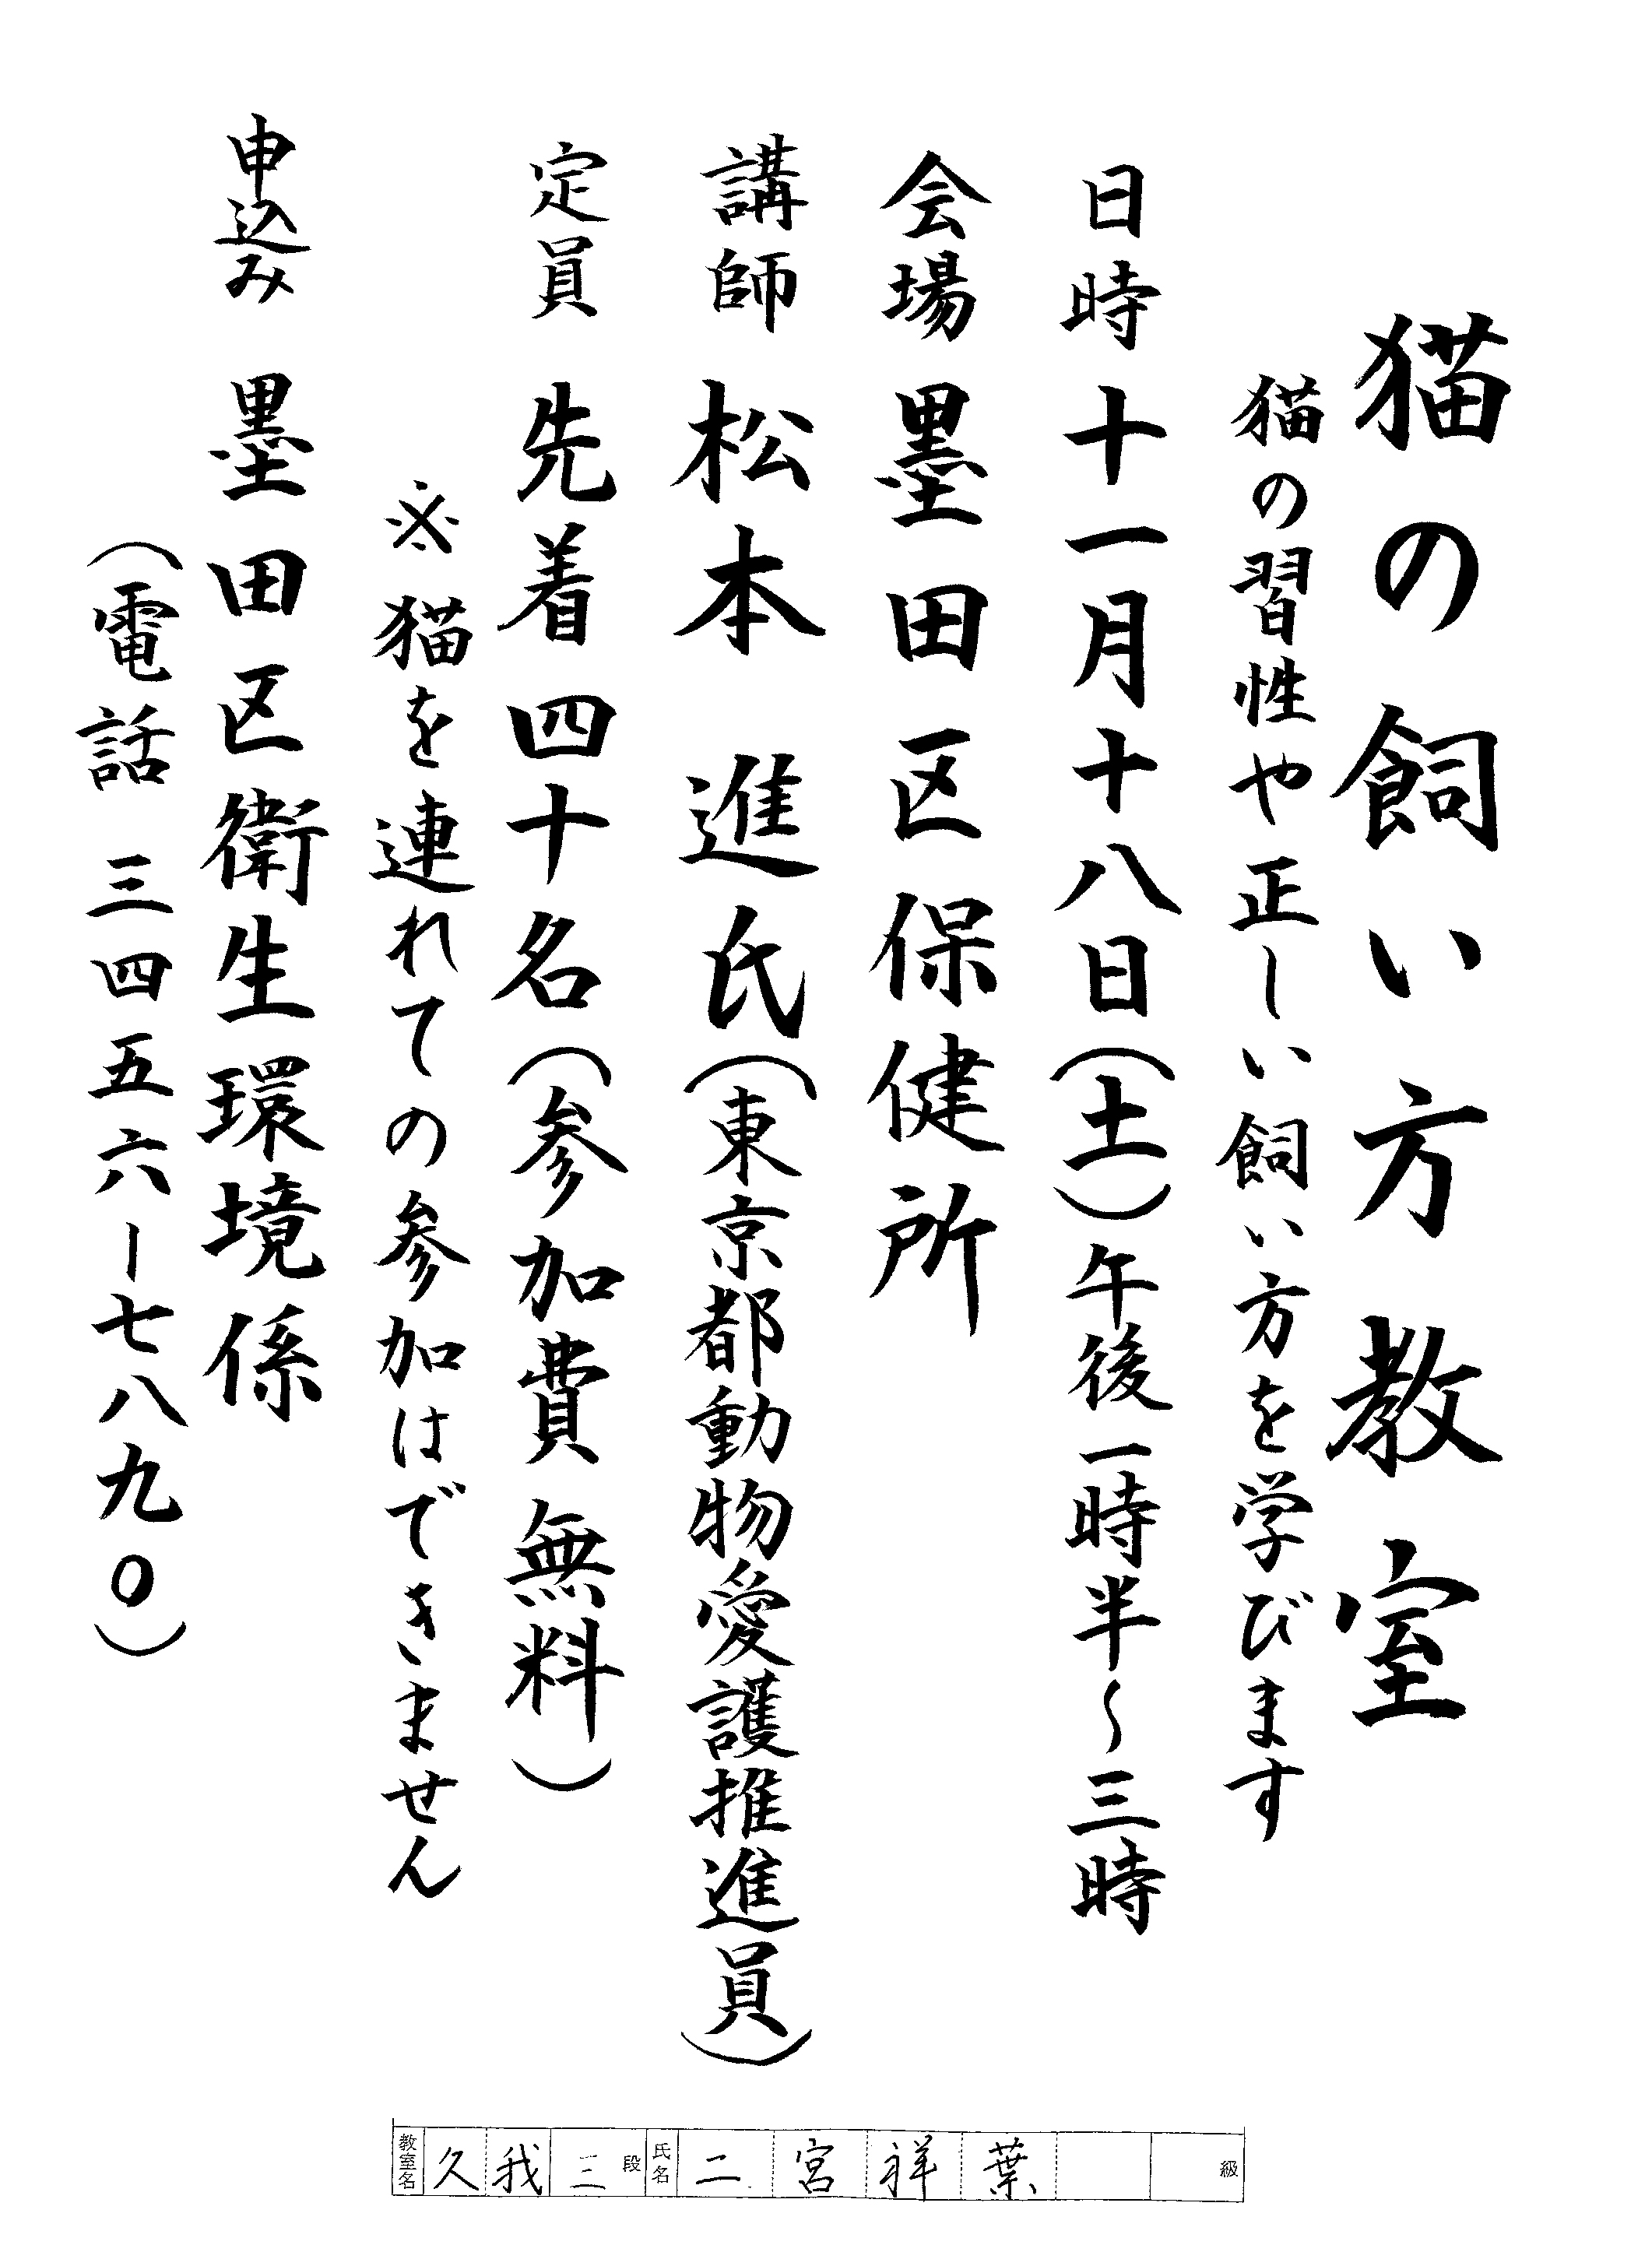 猫の飼い方教室
猫の習性や正しい飼い方を学びます
日時 十一月十八日(土)午後一時半～三時
会場 墨田区保健所
講師 松本 進氏(東京都動物愛護推進員)
定員 先着四十名(参加費無料)
※猫を連れての参加はできません
申込み 墨田区衛生環境係
(電話 三四五六ー七八九〇)
教室名 久我 三段 氏名 二宮祥葉 級